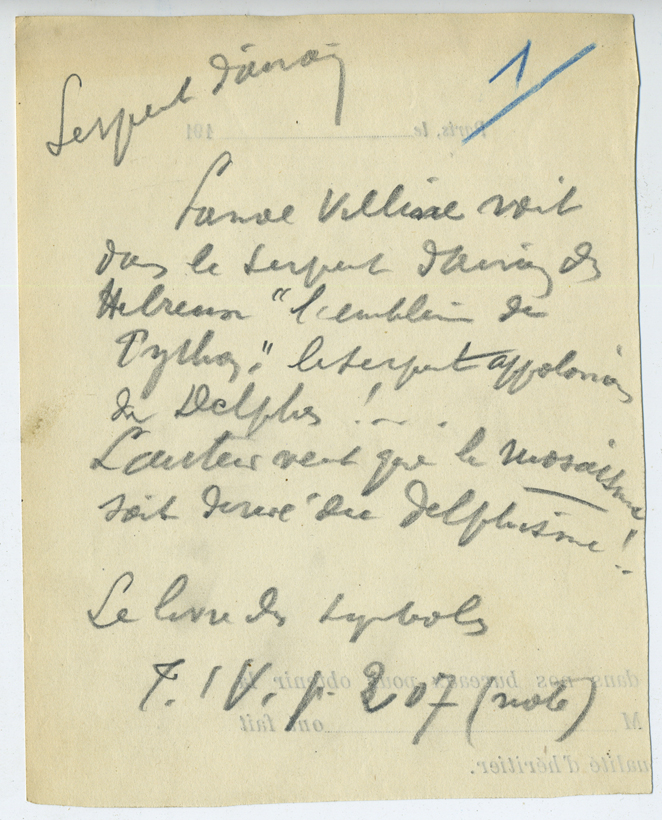 Serpent d'airain
1/
Lanoe Villène voit
dans le serpent d'airain des
Hébreux "l'emblème de
Python," le serpent appolonien
de Delphes !...
L'auteur veut que le mosaïsme
soit dérivé du delphisme !..
Le livre des symboles
T. IV. p. 207 (note)
Paris, le 191
dans nos bureaux pour obtenir
M ont fait
qualité d'héritier.